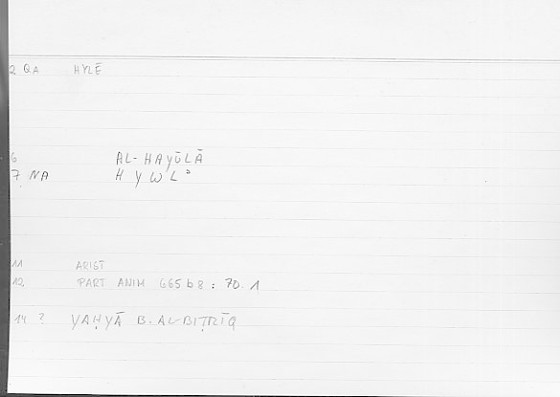 2 QA HYLĒ
6 AL-HAYŪLĀ
7 NA HYWLᵓ
11 ARIST
12 PART ANIM 665b8 : 70.1
14 ? YAḤYĀ B. AL-BIṬRĪQ